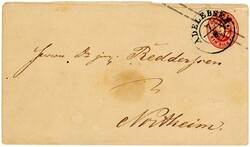 ADELEBSEN
Herrn Dr jur. Reddersen
Northeim.